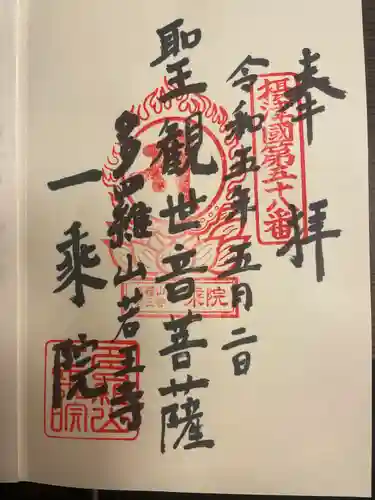 奉拝
摂津國第五十八番
令和五年五月二日
聖観世音菩薩
多羅山若王寺
一乗院